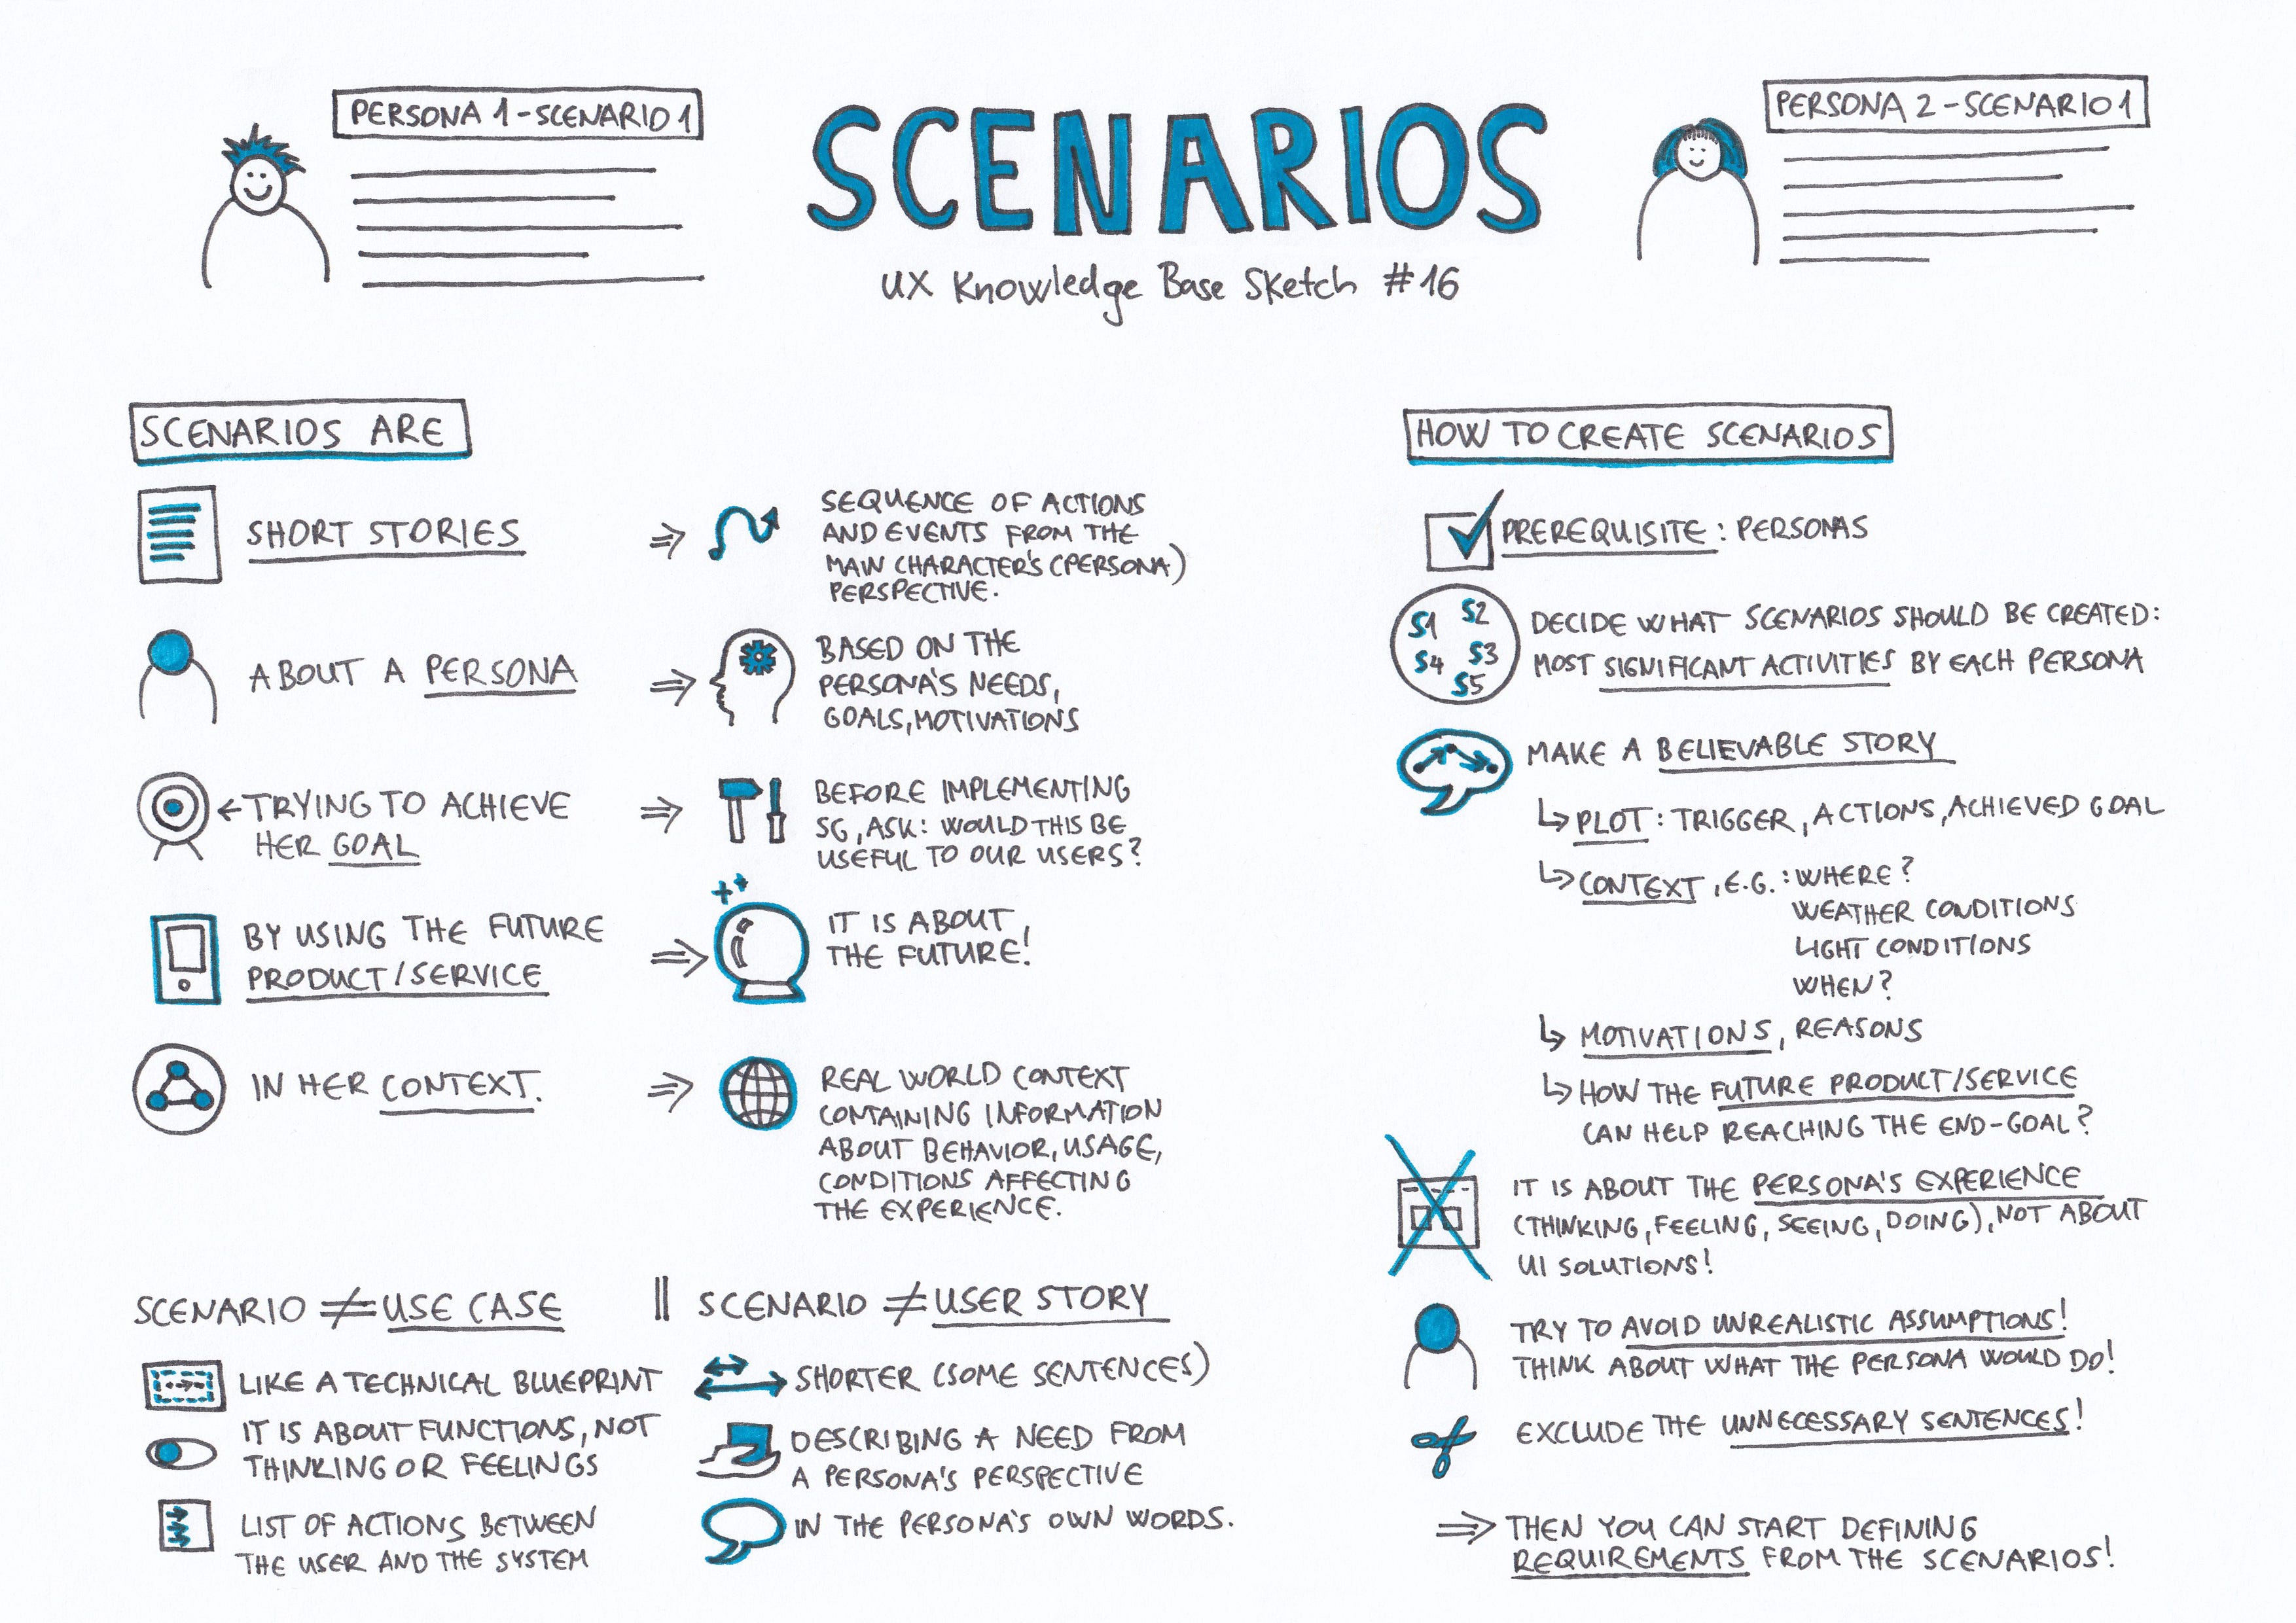 PERSONA 1 - SCENARIO 1
SCENARIOS
UX Knowledge Base Sketch #16
PERSONA 2 - SCENARIO 1
SCENARIOS ARE
SHORT STORIES
⇒
SEQUENCE OF ACTIONS
AND EVENTS FROM THE
MAIN CHARACTER'S (PERSONA)
PERSPECTIVE.
ABOUT A PERSONA
⇒
BASED ON THE
PERSONA'S NEEDS,
GOALS, MOTIVATIONS
← TRYING TO ACHIEVE
HER GOAL
⇒
BEFORE IMPLEMENTING
SG, ASK: WOULD THIS BE
USEFUL TO OUR USERS?
BY USING THE FUTURE
PRODUCT/SERVICE
⇒
IT IS ABOUT
THE FUTURE!
IN HER CONTEXT.
⇒
REAL WORLD CONTEXT
CONTAINING INFORMATION
ABOUT BEHAVIOR, USAGE,
CONDITIONS AFFECTING
THE EXPERIENCE.
SCENARIO ≠ USE CASE
LIKE A TECHNICAL BLUEPRINT
IT IS ABOUT FUNCTIONS, NOT
THINKING OR FEELINGS
LIST OF ACTIONS BETWEEN
THE USER AND THE SYSTEM
SCENARIO ≠ USER STORY
SHORTER (SOME SENTENCES)
DESCRIBING A NEED FROM
A PERSONA'S PERSPECTIVE
IN THE PERSONA'S OWN WORDS.
HOW TO CREATE SCENARIOS
PREREQUISITE: PERSONAS
S1 S2
S4 S3
S5
DECIDE WHAT SCENARIOS SHOULD BE CREATED:
MOST SIGNIFICANT ACTIVITIES BY EACH PERSONA
MAKE A BELIEVABLE STORY
↳ PLOT: TRIGGER, ACTIONS, ACHIEVED GOAL
↳ CONTEXT, E.G.: WHERE?
WEATHER CONDITIONS
LIGHT CONDITIONS
WHEN?
↳ MOTIVATIONS, REASONS
↳ HOW THE FUTURE PRODUCT/SERVICE
CAN HELP REACHING THE END-GOAL?
IT IS ABOUT THE PERSONA'S EXPERIENCE
(THINKING, FEELING, SEEING, DOING), NOT ABOUT
UI SOLUTIONS!
TRY TO AVOID UNREALISTIC ASSUMPTIONS!
THINK ABOUT WHAT THE PERSONA WOULD DO!
EXCLUDE THE UNNECESSARY SENTENCES!
⇒ THEN YOU CAN START DEFINING
REQUIREMENTS FROM THE SCENARIOS!